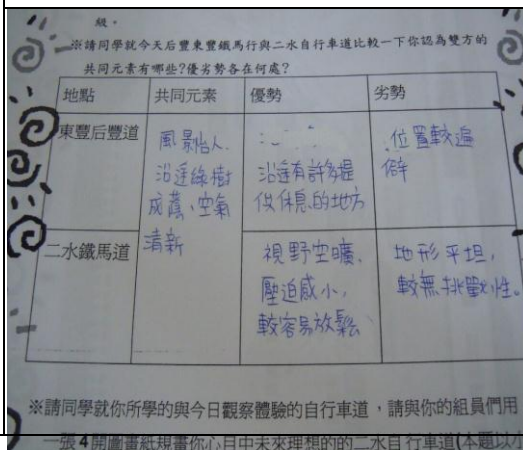 級。
※請同學就今天后豐東豐鐵馬行與二水自行車道比較一下你認為雙方的
共同元素有哪些?優劣勢各在何處?
地點 共同元素 優勢 劣勢
東豐后豐道
風景怡人、
沿途綠樹
成蔭、空氣
清新
沿途有許多提
供休息的地方
位置較遍
僻
二水鐵馬道
視野空曠、
壓迫感小,
較容易放鬆
地形平坦,
較無挑戰性。
※請同學就你所學的與今日觀察體驗的自行車道,請與你的組員們用
一張4開圖畫紙規畫你心目中未來理想的的二水自行車道(本題以小